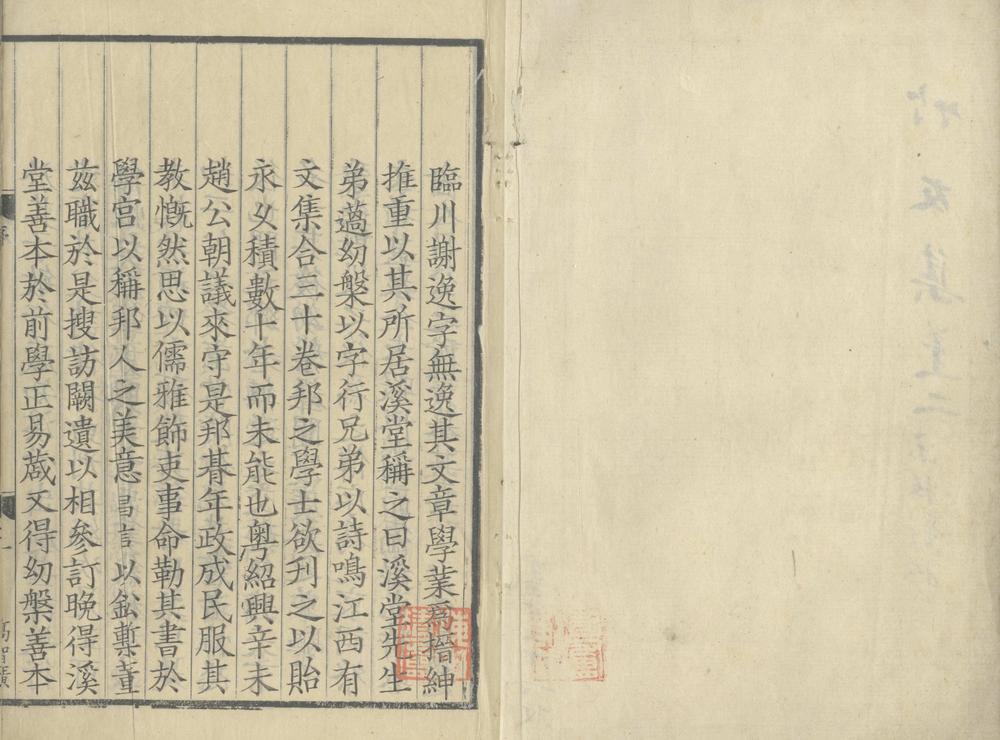 臨川謝逸字無逸其文章學業爲搢紳
推重以其所居溪堂稱之曰溪堂先生
弟薖幼槃以字行兄弟以詩鳴江西有
文集合三十卷邦之學士欲刋之以貽
永久積數十年而未能也粤紹興辛未
趙公朝議來守是邦朞年政成民服其
教慨然思以儒雅飾吏事命勒其書於
學宫以稱邦人之美意昌言以鈆槧董
茲職於是搜訪闕遺以相參訂晚得溪
堂善本於前學正易蕆又得幼槃善本
序
一